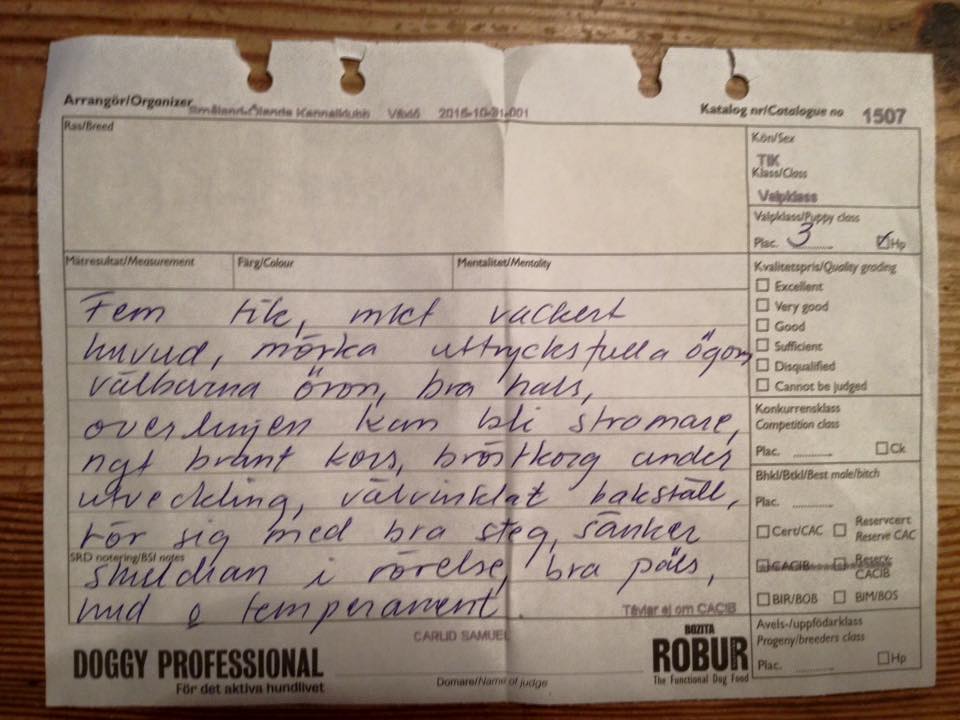 Arrangör/Organizer Småland-Ölands Kennelklubb Växjö 2015-10-31-001
Katalog nr/Catalogue no 1507
Ras/Breed
Kön/Sex
TIK
Klass/Class
Valpklass
Valpklass/Puppy class
Plac. 3 Hp
Mätresultat/Measurement Färg/Colour Mentalitet/Mentality
Kvalitetspris/Quality grading
Excellent
Very good
Good
Sufficient
Disqualified
Cannot be judged
Konkurrensklass
Competition class
Plac. Ck
Bhkl/Btkl/Best male/bitch
Plac.
Cert/CAC Reservcert
Reserve CAC
CACIB Reserv-
CACIB
BIR/BOB BIM/BOS
Avels-/uppfödarklass
Progeny/breeders class
Plac. Hp
Fem tik, mkt vackert
huvud, mörka uttrycksfulla ögon,
välburna öron, bra hals,
overlinjen kan bli stramare,
ngt brant kors, bröstkorg under
utveckling, välvinklat bakställ,
rör sig med bra steg, sänker
SRD notering/BSI notes
skuldran i rörelse, bra päls,
hud o temperament.
Tävlar ej om CACIB
CARLID SAMUEL
DOGGY PROFESSIONAL
För det aktiva hundlivet
Domare/Name of judge
BOZITA
ROBUR
The Functional Dog Food